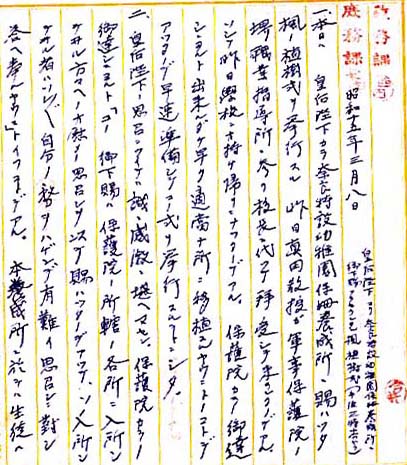 教務課
庶務課
昭和十五年三月八日
皇后陛下ヨリ奈良特設幼稚園保姆養成所ニ
御下賜ニナリマシタ楓植樹式(午後二時ヨリ)
一、本日ハ 皇后陛下カラ奈良特設幼稚園保姆養成所ニ賜ハツタ
楓ノ植樹式ヲ挙行スル 昨日真田教授ガ軍事保護院ノ
堺職業指導所ニ参リ校長ニ代ツテ拝受シテ来タノデアル。
ソシテ昨日学校ニ持チ帰リニナツタノデアル。 保護院カラ御達
シニヨルト出来ルダケ早ク適当ナ所ニ移植スルヤウニトノコトデ
アツタノデ早速準備シテ式ヲ挙行スルコトニシタ。
二、皇后陛下ノ思召ニツイテハ誠ニ感激ニ堪ヘマセン。保護院カラノ
御達シニヨルト「コノ御下賜ハ保護院ノ所轄ノ各所ニ入所シ
テヰル方々ヘノ有難イ思召シヨリシテ賜ハツタノデアツテ、ソノ入所シ
テヰル者ハソレゾレ自分ノ務ヲハゲンデ有難イ思召シニ対シ
答ヘ奉ルヤウ」トイフコトデアル。 本養成所ニ於テハ生徒ヘ